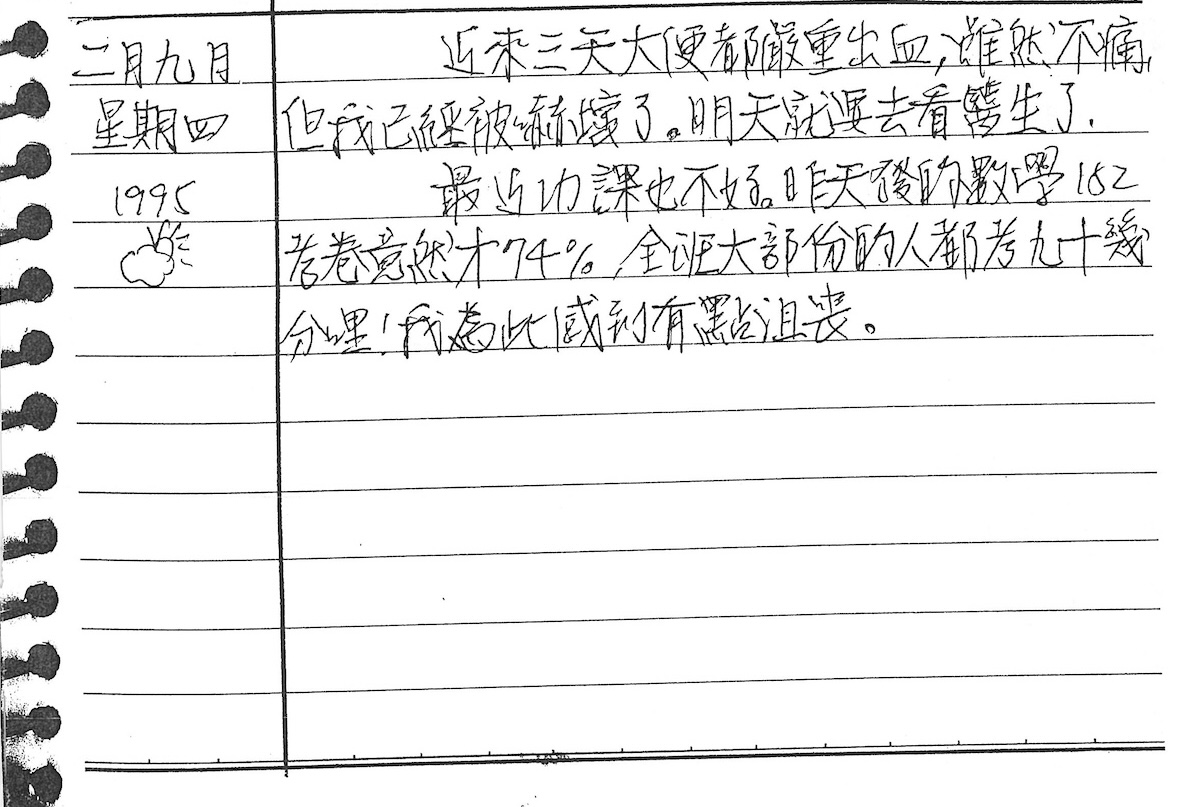 二月九日
星期四
1995
近來三天大便都嚴重出血,雖然不痛,
但我已經被嚇壞了。明天就要去看醫生了.
最近功課也不好。昨天發的數學152
考卷竟然才74%,全班大部份的人都考九十幾
分哩!我為此感到有點沮喪。